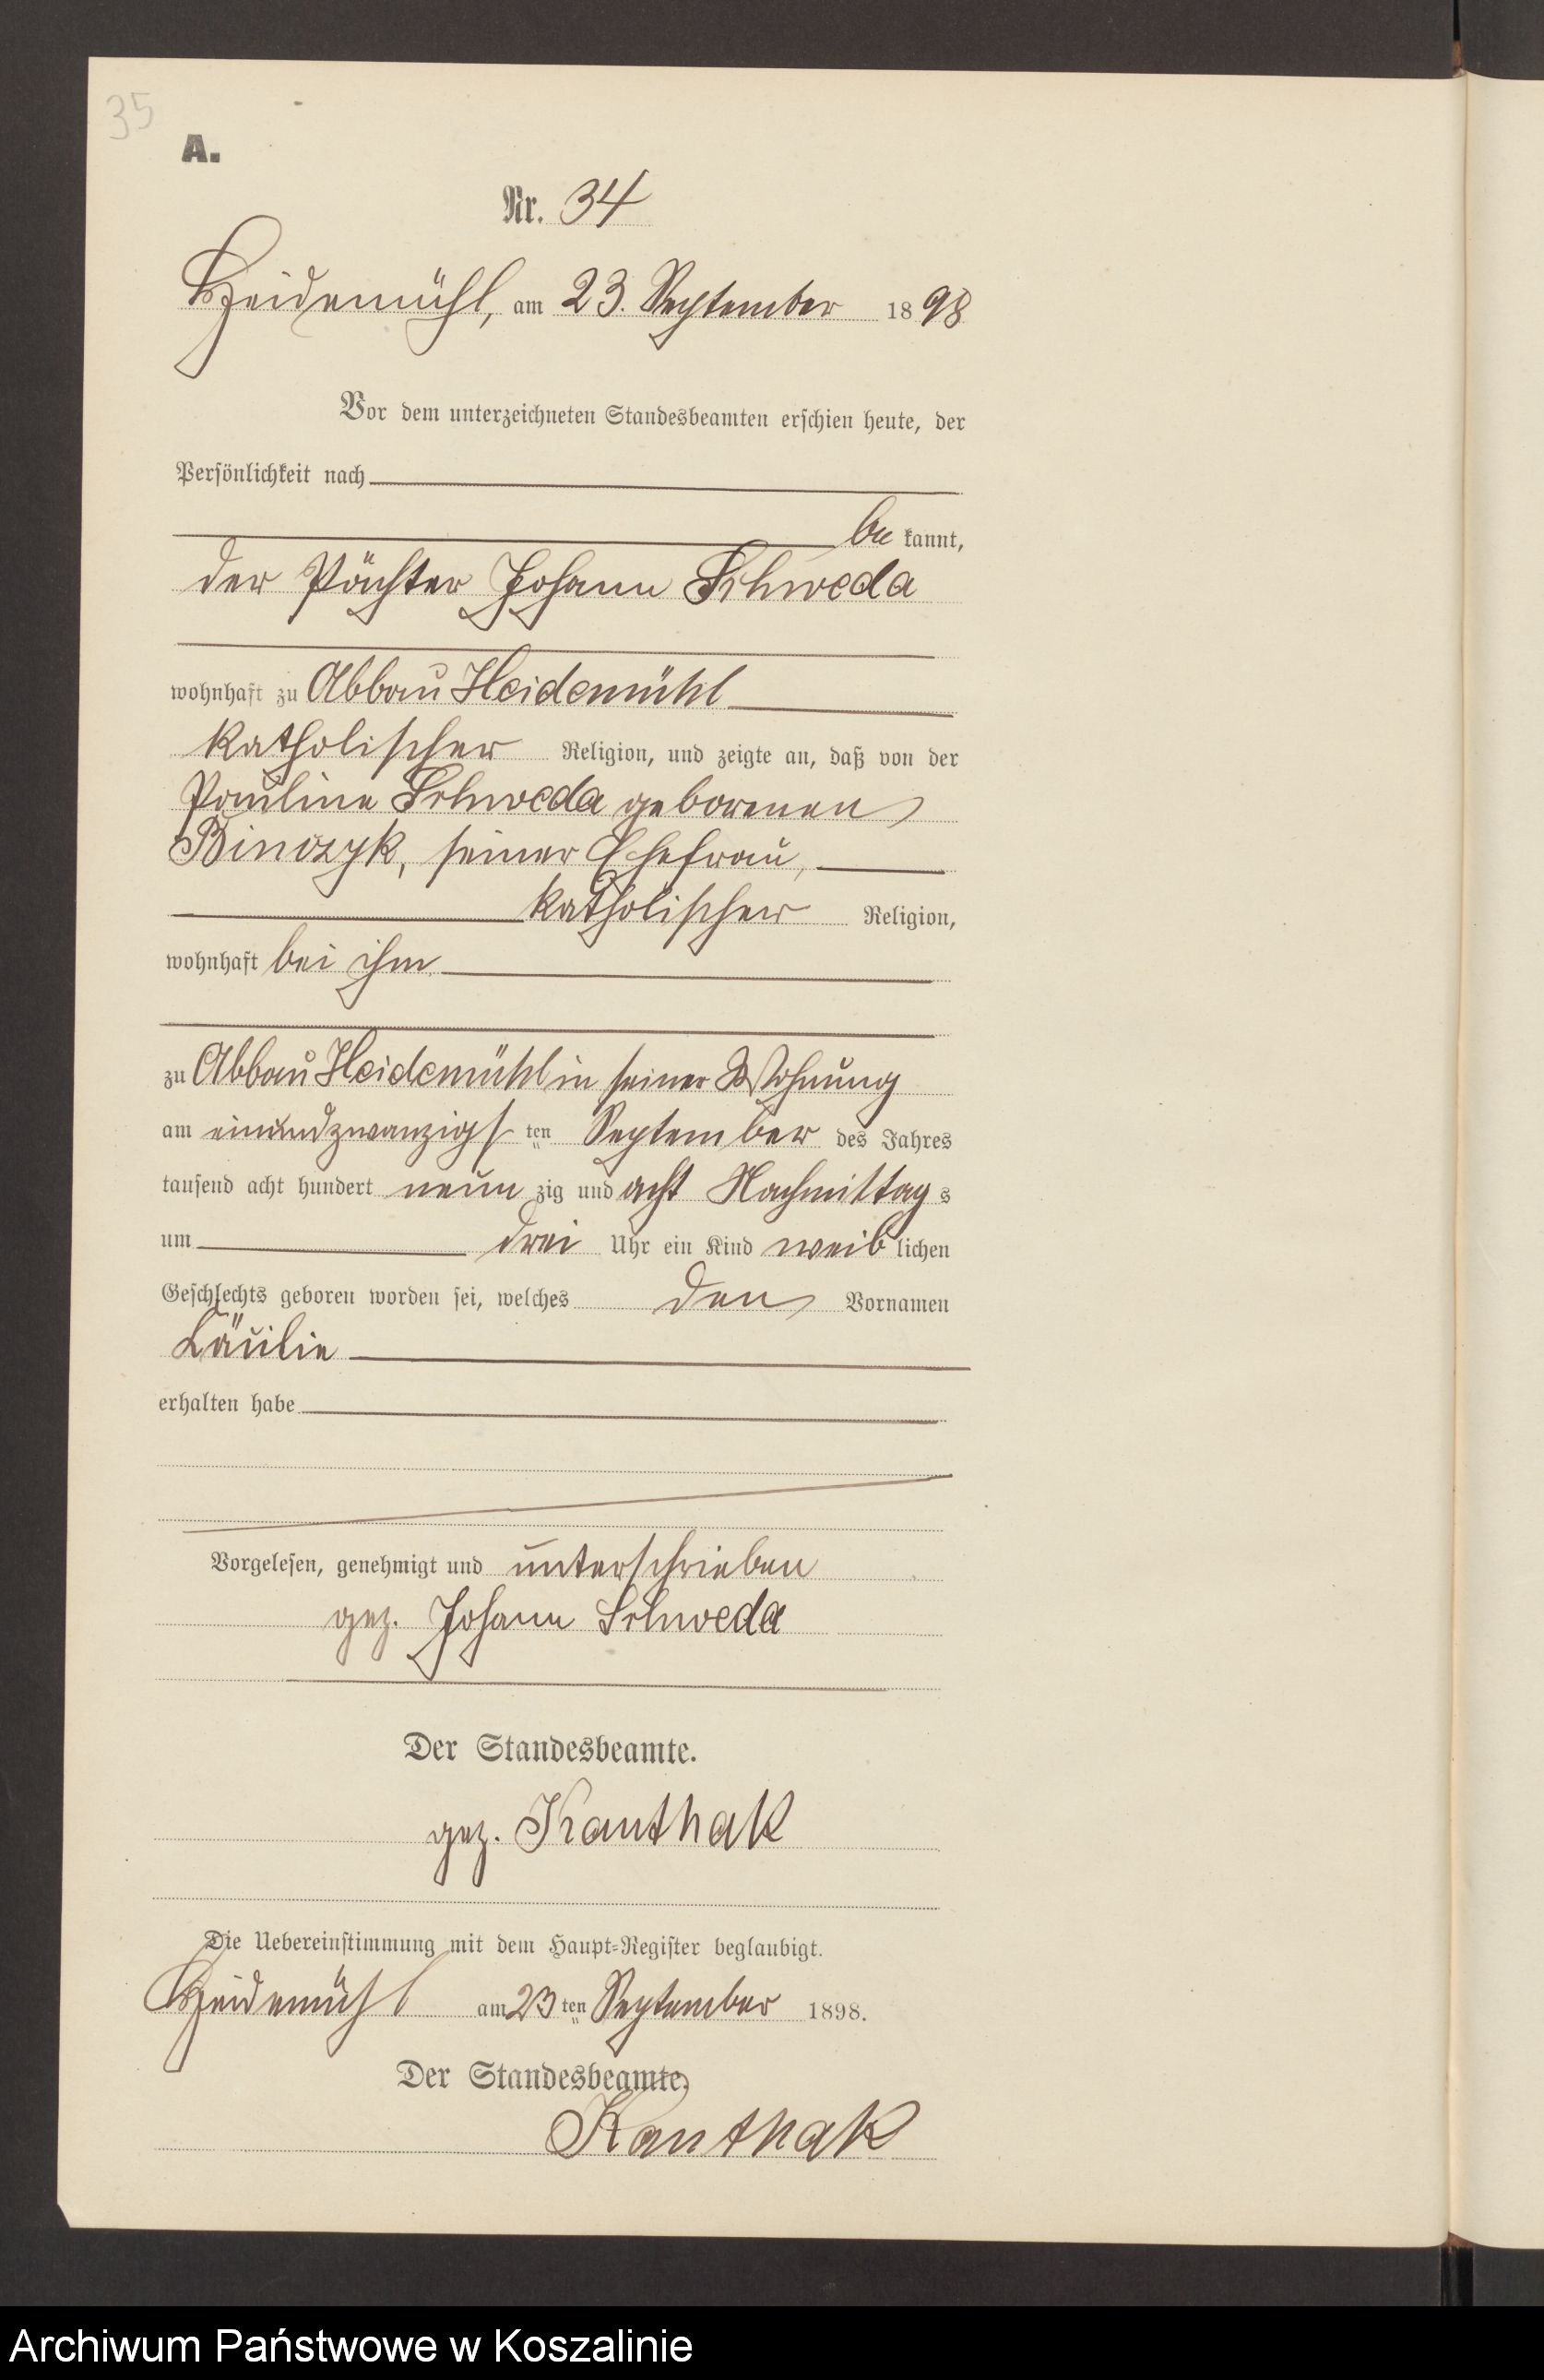 35
A.
Nr. 34
Heidemühl, am 23. September 1898
Vor dem unterzeichneten Standesbeamten erschien heute, der
Persönlichkeit nach
be kannt,
der Pächter Johann Schweda
wohnhaft zu Abbau Heidemühl
katholischer Religion, und zeigte an, daß von der
Pauline Schweda geborenen
Binczyk, seiner Ehefrau,
katholischer Religion,
wohnhaft bei ihm
zu Abbau Heidemühl in seiner Wohnung
am einundzwanzigs ten September des Jahres
tausend acht hundert neun zig und acht Nachmittag s
um drei Uhr ein Kind weib lichen
Geschlechts geboren worden sei, welches den Vornamen
erhalten habe
Vorgelesen, genehmigt und unterschrieben
gez. Johann Schweda
Der Standesbeamte.
gez. Kanthak
Die Uebereinstimmung mit dem Haupt-Register beglaubigt.
Heidemühl am 23 ten September 1898.
Der Standesbeamte.
Kanthak
Archiwum Państwowe w Koszalinie